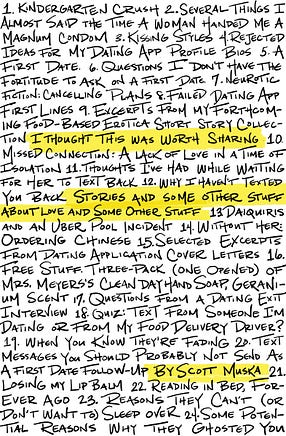 1. KINDERGARTEN CRUSH 2. SEVERAL THINGS I
ALMOST SAID THE TIME A WOMAN HANDED ME A
MAGNUM CONDOM 3. KISSING STYLES 4. REJECTED
IDEAS FOR MY DATING APP PROFILE BIOS 5. A
FIRST DATE. 6. QUESTIONS I DON'T HAVE THE
FORTITUDE TO ASK ON A FIRST DATE 7. NEUROTIC
FICTION: CANCELLING PLANS 8. FAILED DATING APP
FIRST LINES 9. EXCERPTS FROM MY FORTHCOM-
ING FOOD-BASED EROTICA SHORT STORY COLLEC-
TION I THOUGHT THIS WAS WORTH SHARING 10.
MISSED CONNECTION: A LACK OF LOVE IN A TIME OF
ISOLATION 11. THOUGHTS I'VE HAD WHILE WAITING
FOR HER TO TEXT BACK 12. WHY I HAVEN'T TEXTED
YOU BACK STORIES AND SOME OTHER STUFF
ABOUT LOVE AND SOME OTHER STUFF 13 DAIQUIRIS
AND AN UBER POOL INCIDENT 14. WITHOUT HER:
ORDERING CHINESE 15. SELECTED EXCERPTS
FROM DATING APPLICATION COVER LETTERS 16.
FREE STUFF: THREE-PACK (ONE OPENED) OF
MRS. MEYERS'S CLEAN DAY HAND SOAP, GERANI-
UM SCENT 17. QUESTIONS FROM A DATING EXIT
INTERVIEW 18 QUIZ: TEXT FROM SOMEONE I'M
DATING OR FROM MY FOOD DELIVERY DRIVER?
19. WHEN YOU KNOW THEY'RE FADING 20. TEXT
MESSAGES YOU SHOULD PROBABLY NOT SEND AS
A FIRST DATE FOLLOW-UP BY SCOTT MUSKA 21.
LOSING MY LIP BALM 22. READING IN BED, FOR-
EVER AGO 23. REASONS THEY CAN'T (OR
DON'T WANT TO) SLEEP OVER 24. SOME POTEN-
TIAL REASONS WHY THEY GHOSTED YOU